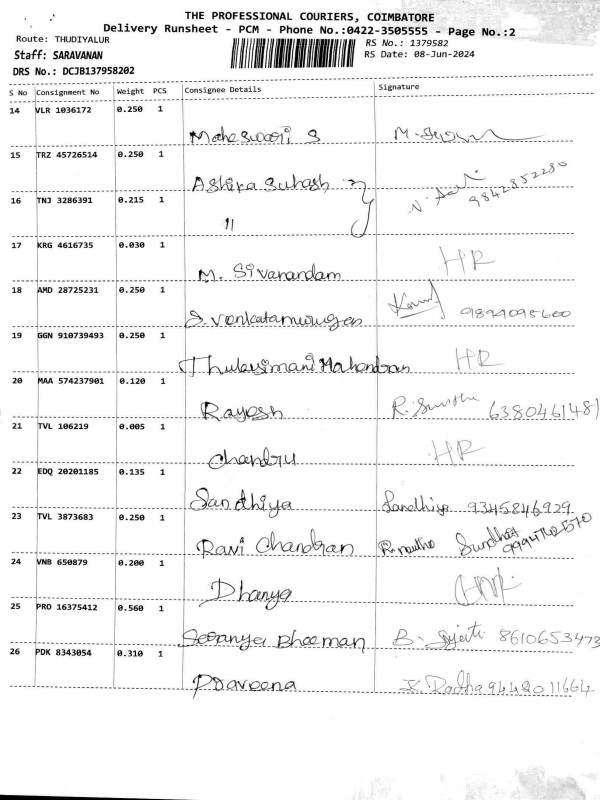 THE PROFESSIONAL COURIERS, COIMBATORE
Delivery Runsheet - PCM - Phone No.:0422-3505555 - Page No.:2
Route: THUDIYALUR
RS No.: 1379582
Staff: SARAVANAN
RS Date: 08-Jun-2024
DRS No.: DCJB137958202
S No Consignment No Weight PCS Consignee Details Signature
14 VLR 1036172 0.250 1
Maheswari S M.
15 TRZ 45726514 0.250 1
Ashika Suhash 9842852280
16 TNJ 3286391 0.215 1
11
17 KRG 4616735 0.030 1
M. Sivanandam HR
18 AMD 28725231 0.250 1
S. Venkatamurugan 9894095600
19 GGN 910739493 0.250 1
Thulasimani Mahendran HR
20 MAA 574237901 0.120 1
Rayesh R. 6380461481
21 TVL 106219 0.005 1
Chandru HR
22 EDQ 20201185 0.135 1
Sandhiya Sandhiya 9345846929
23 TVL 3873683 0.250 1
Ravi Chandran
24 VNB 650879 0.200 1
Dhanya
25 PRO 16375412 0.560 1
Bheeman B. 8610653473
26 PDK 8343054 0.310 1
Praveena K. Radha 9442011664